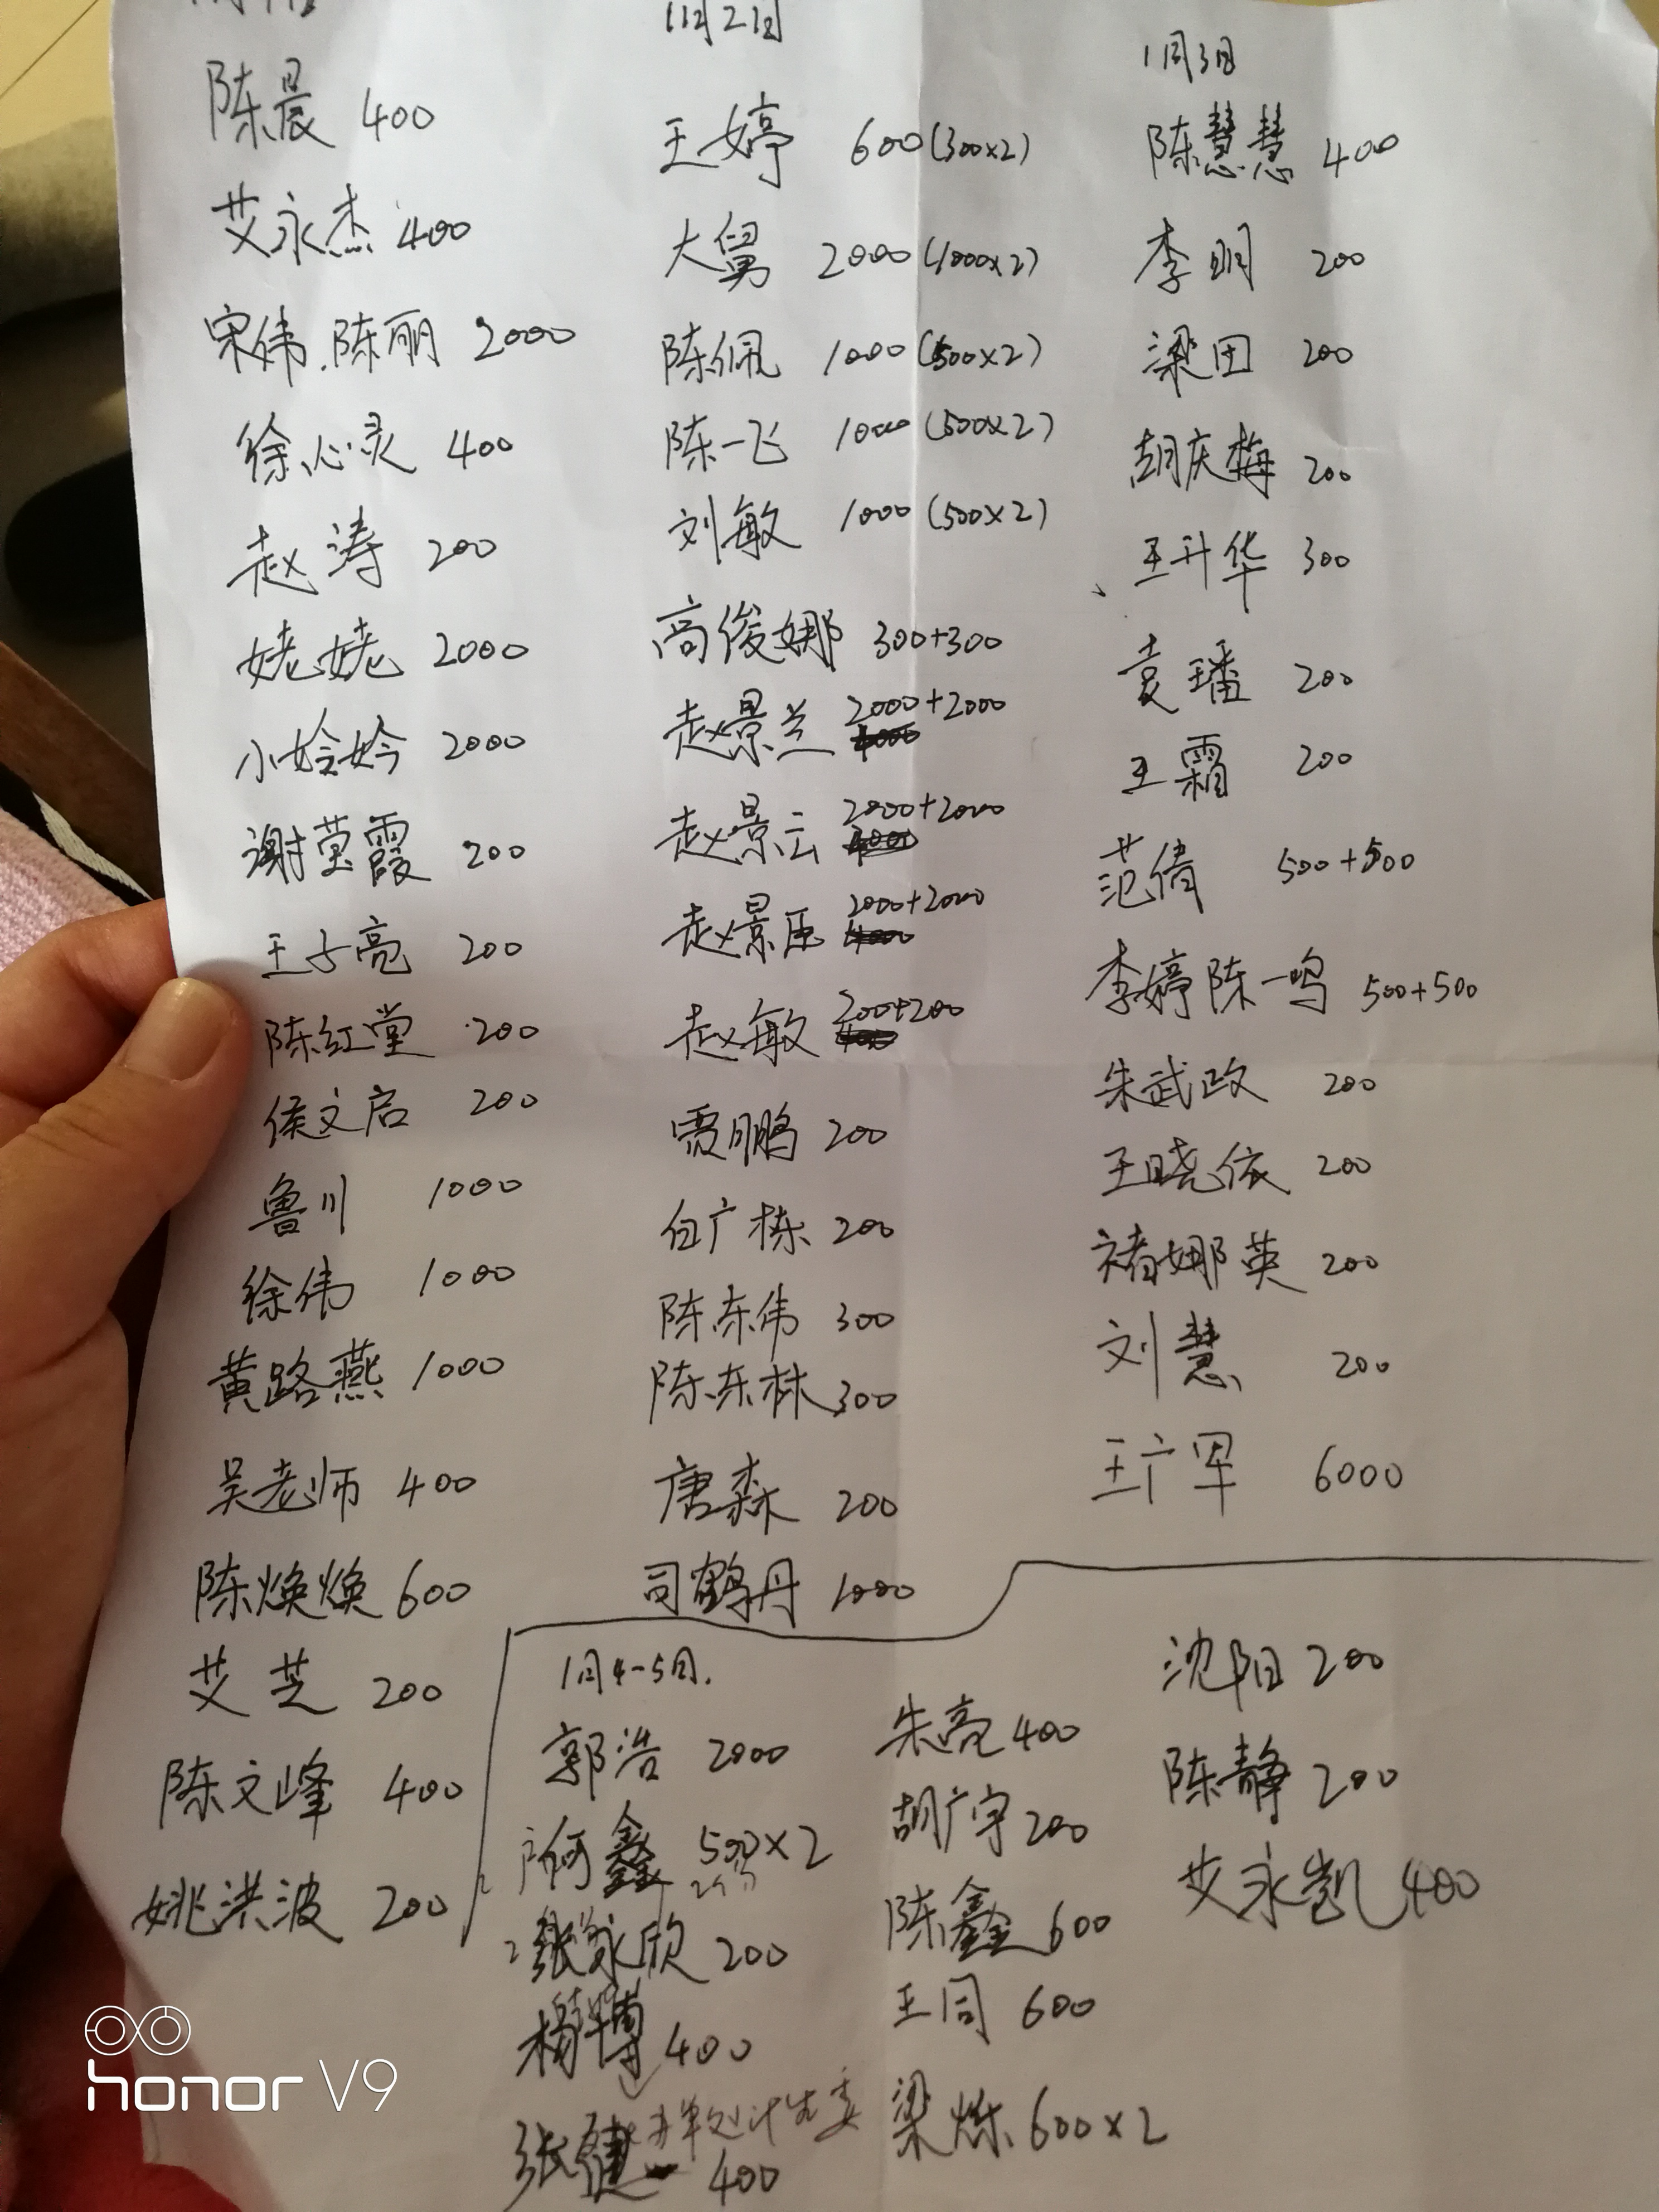 陈晨 400
艾永杰 400
宋伟.陈丽 2000
徐心灵 400
赵涛 200
姥姥 2000
小妗妗 2000
谢莹霞 200
王子亮 200
陈红堂 200
侯文启 200
鲁川 1000
徐伟 1000
黄路燕 1000
吴老师 400
陈焕焕 600
艾芝 200
陈文峰 400
姚洪波 200
11月2日
王婷 600(300×2)
大舅 2000(1000×2)
陈佩 1000(500×2)
陈一飞 1000(500×2)
刘敏 1000(500×2)
高俊娜 300+300
赵景兰 2000+2000
赵景云 2000+2000
赵景臣 2000+2000
赵敏 200+200
贾鹏 200
白广栋 200
陈东伟 300
陈东林 300
唐森 200
司鹤丹 1000
1月3日
陈慧慧 400
李明 200
梁田 200
胡庆梅 200
王升华 300
袁璠 200
王霜 200
范倩 500+500
李婷陈一鸣 500+500
朱武政 200
王晓依 200
褚娜英 200
刘慧 200
王广军 6000
1月4-5日.
郭浩 2000
何鑫 500×2
张永欣 200
杨博 400
张健 400
朱亮 400
胡广宇 200
陈鑫 600
王同 600
梁烁 600×2
沈阳 200
陈静 200
艾永凯 400
honor V9